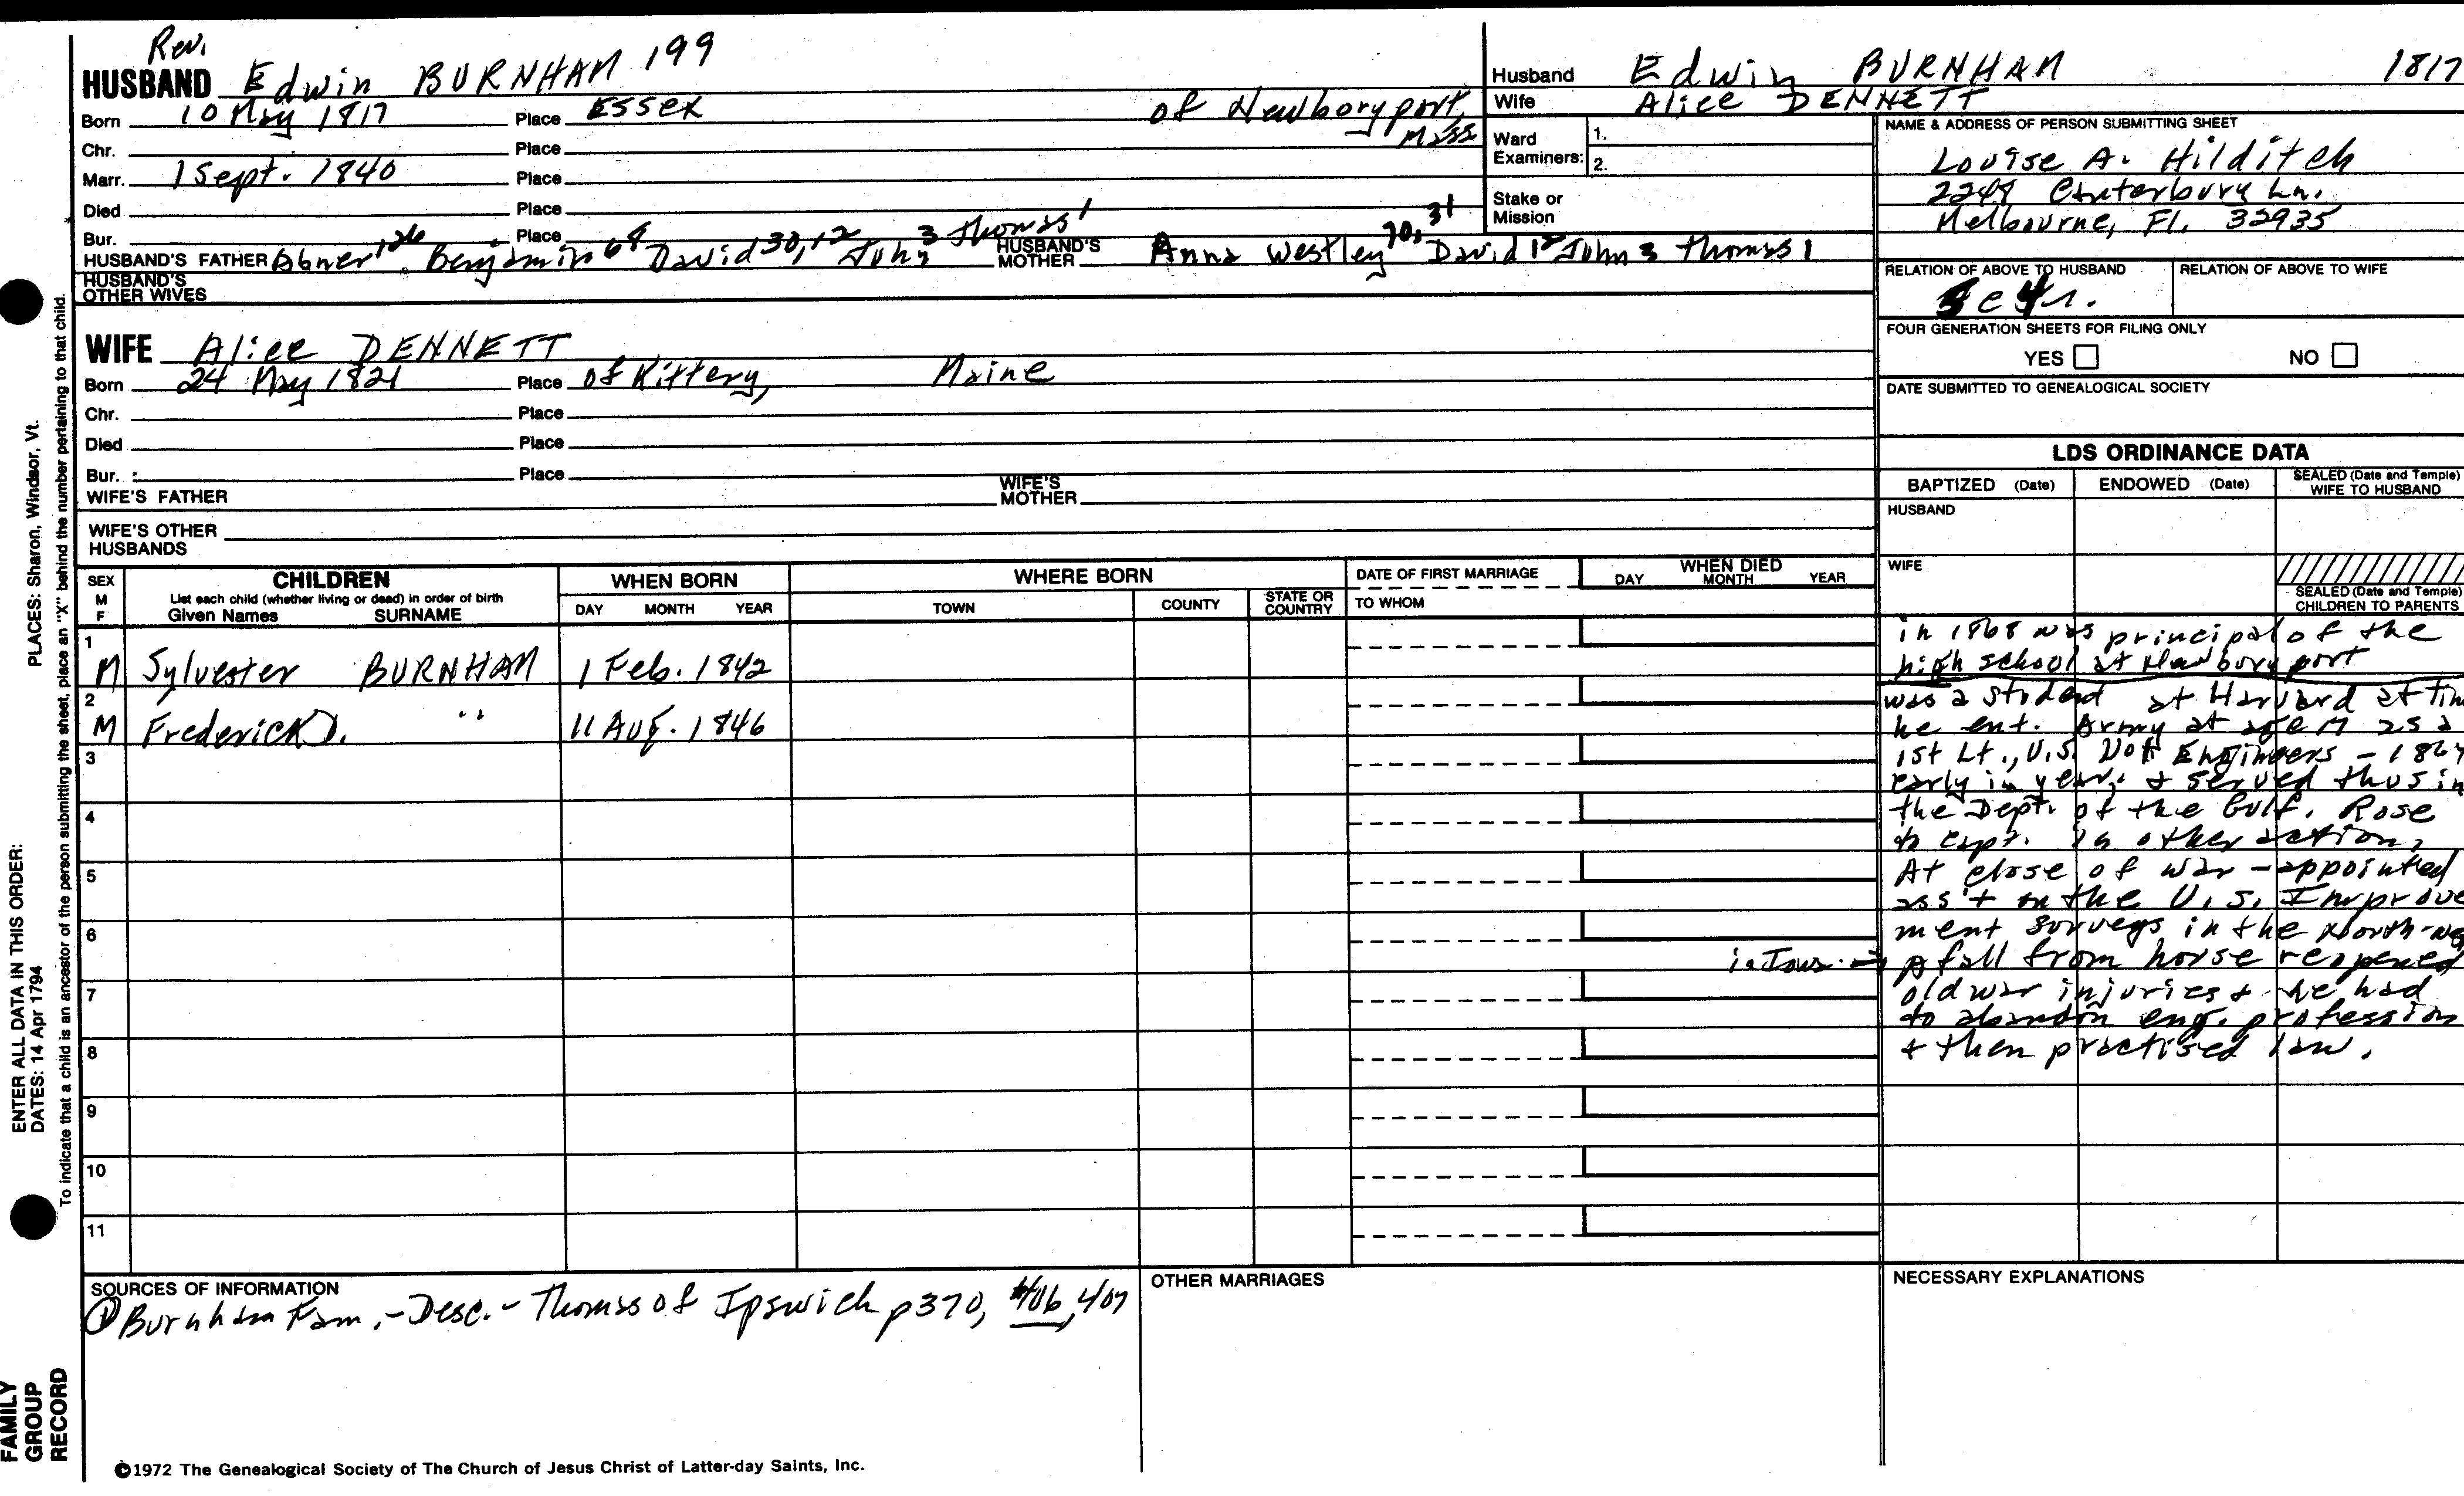 Rev.
HUSBAND Edwin BURNHAM 199
Born 10 May 1817 Place ESSEX of Newboryport, Mass
Chr. Place
Marr. 1 Sept. 1840 Place
Died Place
Bur. Place
HUSBAND'S FATHER Abner 126 Benjamin 68 David 30,12 John 3 Thomas 1 HUSBAND'S MOTHER Anna Westley 70,31 David 12 John 3 Thomas 1
HUSBAND'S OTHER WIVES
WIFE Alice DENNETT
Born 24 May 1821 Place of Kittery, Maine
Chr. Place
Died Place
Bur. Place
WIFE'S FATHER WIFE'S MOTHER
WIFE'S OTHER HUSBANDS
Husband Edwin BURNHAM 1817
Wife Alice DENNETT
Ward Examiners: 1. 2.
Stake or Mission
NAME & ADDRESS OF PERSON SUBMITTING SHEET
Louise A. Hilditch
Canterbury Ln.
Melbourne, Fl. 32935
RELATION OF ABOVE TO HUSBAND RELATION OF ABOVE TO WIFE
FOUR GENERATION SHEETS FOR FILING ONLY
YES NO
DATE SUBMITTED TO GENEALOGICAL SOCIETY
LDS ORDINANCE DATA
BAPTIZED (Date) ENDOWED (Date) SEALED (Date and Temple) WIFE TO HUSBAND
HUSBAND
WIFE
SEALED (Date and Temple) CHILDREN TO PARENTS
SEX M F CHILDREN WHEN BORN WHERE BORN DATE OF FIRST MARRIAGE WHEN DIED
List each child (whether living or dead) in order of birth
Given Names SURNAME DAY MONTH YEAR TOWN COUNTY STATE OR COUNTRY TO WHOM DAY MONTH YEAR
1 M Sylvester BURNHAM 1 Feb. 1842
2 M Frederick D. " 11 Aug. 1846
3
4
5
6
7
8
9
10
11
in 1868 was principal of the
high school at Newboryport
was a student at Harvard at tim
he ent. Army at age 17 as a
1st Lt., U.S. Engineers - 1864
early in year, & served thus in
the Dept. of the Gulf. Rose
to capt. in other action,
At close of war - appointed
ass't on the U.S. Improve
ment surveys in the North-we
in Iowa → A fall from horse reopened
old war injuries & he had
to abandon eng. profession
& then practised law.
SOURCES OF INFORMATION
① Burnham Fam. - Desc. - Thomas of Ipswich p370, 406, 407
OTHER MARRIAGES
NECESSARY EXPLANATIONS
©1972 The Genealogical Society of The Church of Jesus Christ of Latter-day Saints, Inc.
ENTER ALL DATA IN THIS ORDER:
PLACES: Sharon, Windsor, Vt.
DATES: 14 Apr 1794
To indicate that a child is an ancestor of the person submitting the sheet, place an "X" behind the number pertaining to that child.
FAMILY
GROUP
RECORD